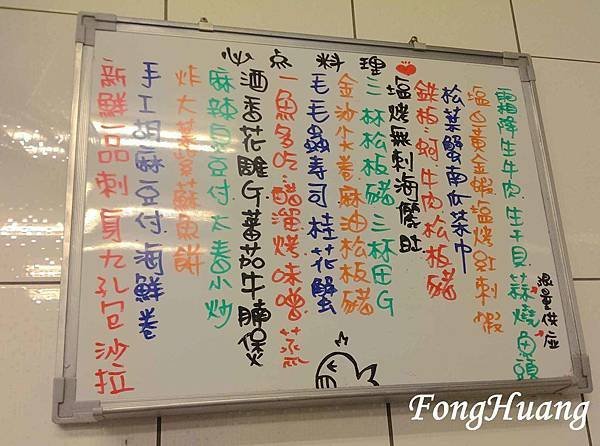 必点料理
霜降生牛肉 生干貝 蒜燒魚頭
限量供应
塩白黃金蝦 塩燒紅刺蝦
松葉蟹南瓜菜巾
鉄板:蚵.牛肉.松板豬
塩燒無刺海儷肚
三杯松板豬 三杯田G
金沙尖卷 麻油松板豬
毛毛蟲壽司 桂花蟹
一魚多吃:醋溜.烤.味噌.蒸
酒香花雕G 蕃茄牛腩煲
麻辣臭豆付 太春小炒
炸大葉紫蘇魚餅
手工胡麻豆付 海鮮卷
新鮮一品刺身 九孔包沙拉
FongHuang